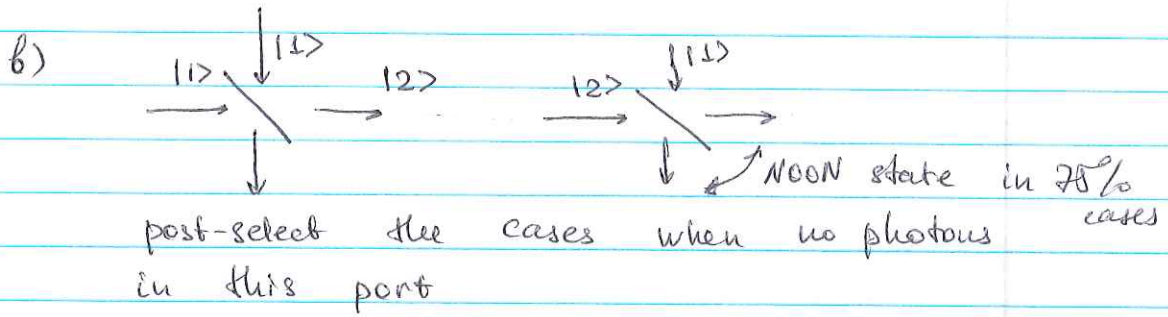 b)
|1> |1> |2> |2> |1>
NOON state in 75%
cases
post-select the cases when no photons
in this port